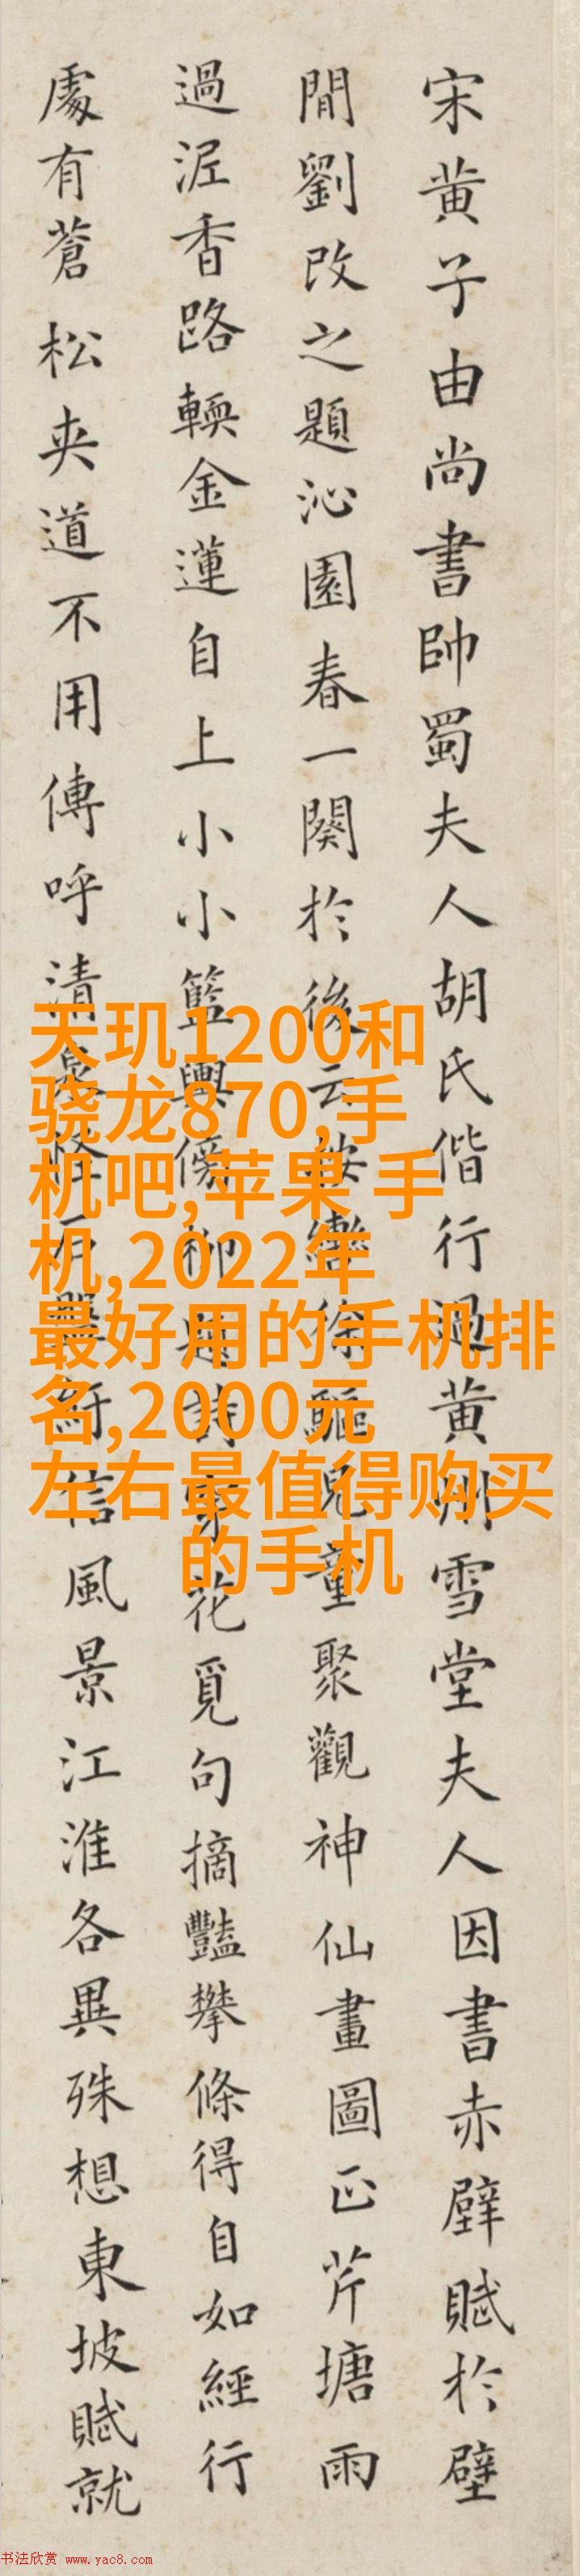 宋黄子由尚書帥蜀夫人胡氏偕行過黄州雪堂夫人因書赤壁賦於壁
間劉改之題沁園春一闋於後云按轡徐驅兒童聚觀神仙畫圖正芹塘雨
過泥香路輭金蓮自上小小籃輿傍柳題詩穿花覓句摘豔攀條得自如經行
處有蒼松夾道不用傳呼清泉怪石盤紆信風景江淮各異殊想東坡賦就
天玑1200和
骁龙870,手
机吧,苹果 手
机,2022年
最好用的手机排
名,2000元
左右最值得购买
的手机
书法欣赏 www.yac8.com